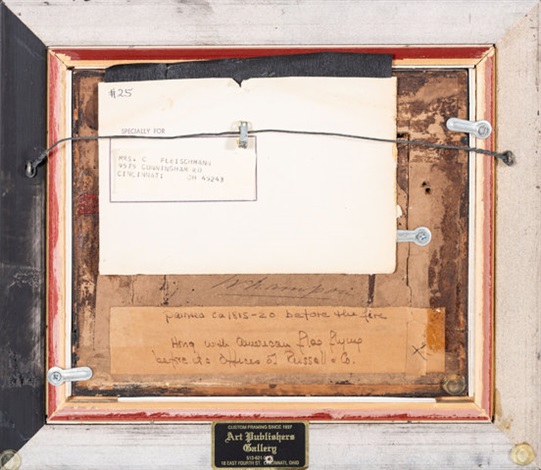 #25
SPECIALLY FOR
MRS. C FLEISCHMANN
CINCINNATI OH 45243
Whampoa
painted ca 1815-20 before the fire
Hong with American flag flying
before its Offices of Russell & Co.
X
CUSTOM FRAMING SINCE
Art Publishers
Gallery
EAST FOURTH ST. CINCINNATI, OHIO